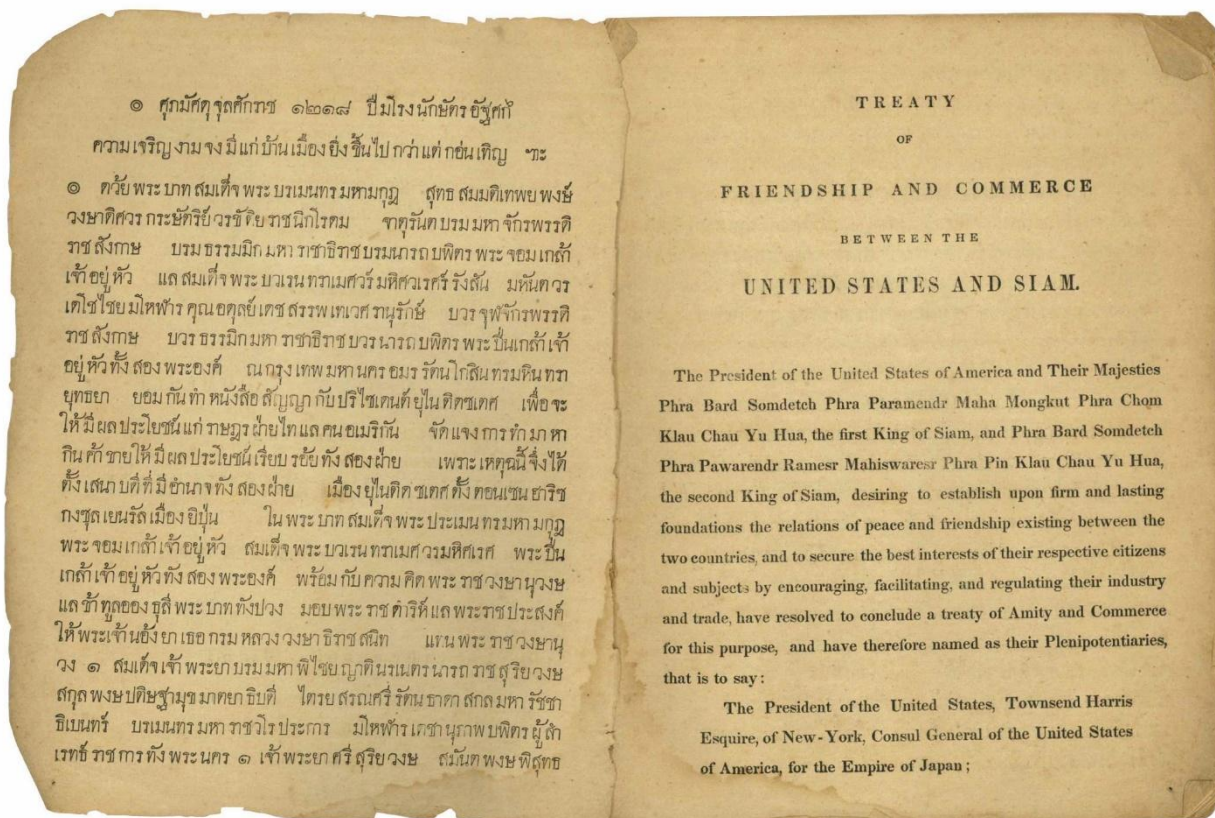 ๏ ศุภมัศดุ จุลศักราช ๑๒๑๘ ปีมโรงนักษัตร อัฐศก
ความเจริญงามจงมีแก่บ้านเมืองยิ่งขึ้นไปกว่าแต่กอ่นเทิญ
๏ ดวัยพระบาทสมเด็จพระบรเมนทรมหามกุฎ สุทธสมมติเทพยพงษ์
วงษาดิศวรกระษัตริย์ วรขัติยราชนิกโรดม จาตุรันตบรมมหาจักรพรรดิ
ราชสังกาษ บรมธรรมมิกมหาราชาธิราชบรมนารถบพิตร พระจอมเกล้า
เจ้าอยู่หัว แลสมเด็จพระบวเรนทราเมศวร์มหิศวเรศร์รังสัน มหันตวร
เดโชไชยมโหฬารคุณอดุลย์เดช สรรพเทเวศรานุรักษ์ บวรจุฬจักรพรรดิ
ราชสังกาษ บวรธรรมิกมหาราชาธิราชบวรนารถบพิตร พระปิ่นเกล้าเจ้า
อยู่หัวทั้งสองพระองค์ ณกรุงเทพมหานครอมรรัตนโกสินทรมหินทรา
ยุทธยา ยอมกันทำหนังสือสัญญากับปริไซเดนต์ยุไนติดซเตศ เพื่อจะ
ให้มีผลประโยชน์แก่ราษฎรฝ่ายไทแลคนอเมริกัน จัดแจงการทำมาหา
กินค้าขายให้มีผลประโยชน์เรียบรอ้ยทังสองฝ่าย เพราะเหตุฉนี้จึ่งได้
ตั้งเสนาบดีที่มีอำนาจทังสองฝ่าย เมืองยุไนติดซเตศตั้งตอนเซนฮาริซ
กงซุลเยนรัลเมืองยิปุ่น ในพระบาทสมเด็จพระปรเมนทรมหามกุฎ
พระจอมเกล้าเจ้าอยู่หัว สมเด็จพระบวเรนทราเมศวรมหิศเรศ พระปิ่น
เกล้าเจ้าอยู่หัวทังสองพระองค์ พร้อมกับความคิดพระราชวงษานุวงษ
แลข้าทูลอองธุลีพระบาททังปวง มอบพระราชดำริห์แลพระราชประสงค์
ให้พระเจ้านอ้งยาเธอ กรมหลวงวงษาธิราชสนิท แทนพระราชวงษานุ
วง ๑ สมเด็จเจ้าพระยาบรมมหาพิไชยญาตินรเนตรนารถราชสุริยวงษ
สกุลพงษปดิษฐามุขมาตยาธิบดี ไตรยสรณศรีรัตนธาดา สกลมหารัชชา
ธิเบนทร์ บรเมนทรมหาราชวโรประการ มโหฬารเดชานุภาพบพิตร ผู้สำ
เรทธ์ราชการทังพระนคร ๑ เจ้าพระยาศรีสุริยวงษ สมันตพงษพิสุทธ
TREATY
OF
FRIENDSHIP AND COMMERCE
BETWEEN THE
UNITED STATES AND SIAM.
The President of the United States of America and Their Majesties
Phra Bard Somdetch Phra Paramendr Maha Mongkut Phra Chom
Klau Chau Yu Hua, the first King of Siam, and Phra Bard Somdetch
Phra Pawarendr Ramesr Mahiswaresr Phra Pin Klau Chau Yu Hua,
the second King of Siam, desiring to establish upon firm and lasting
foundations the relations of peace and friendship existing between the
two countries, and to secure the best interests of their respective citizens
and subjects by encouraging, facilitating, and regulating their industry
and trade, have resolved to conclude a treaty of Amity and Commerce
for this purpose, and have therefore named as their Plenipotentiaries,
that is to say:
The President of the United States, Townsend Harris
Esquire, of New-York, Consul General of the United States
of America, for the Empire of Japan;